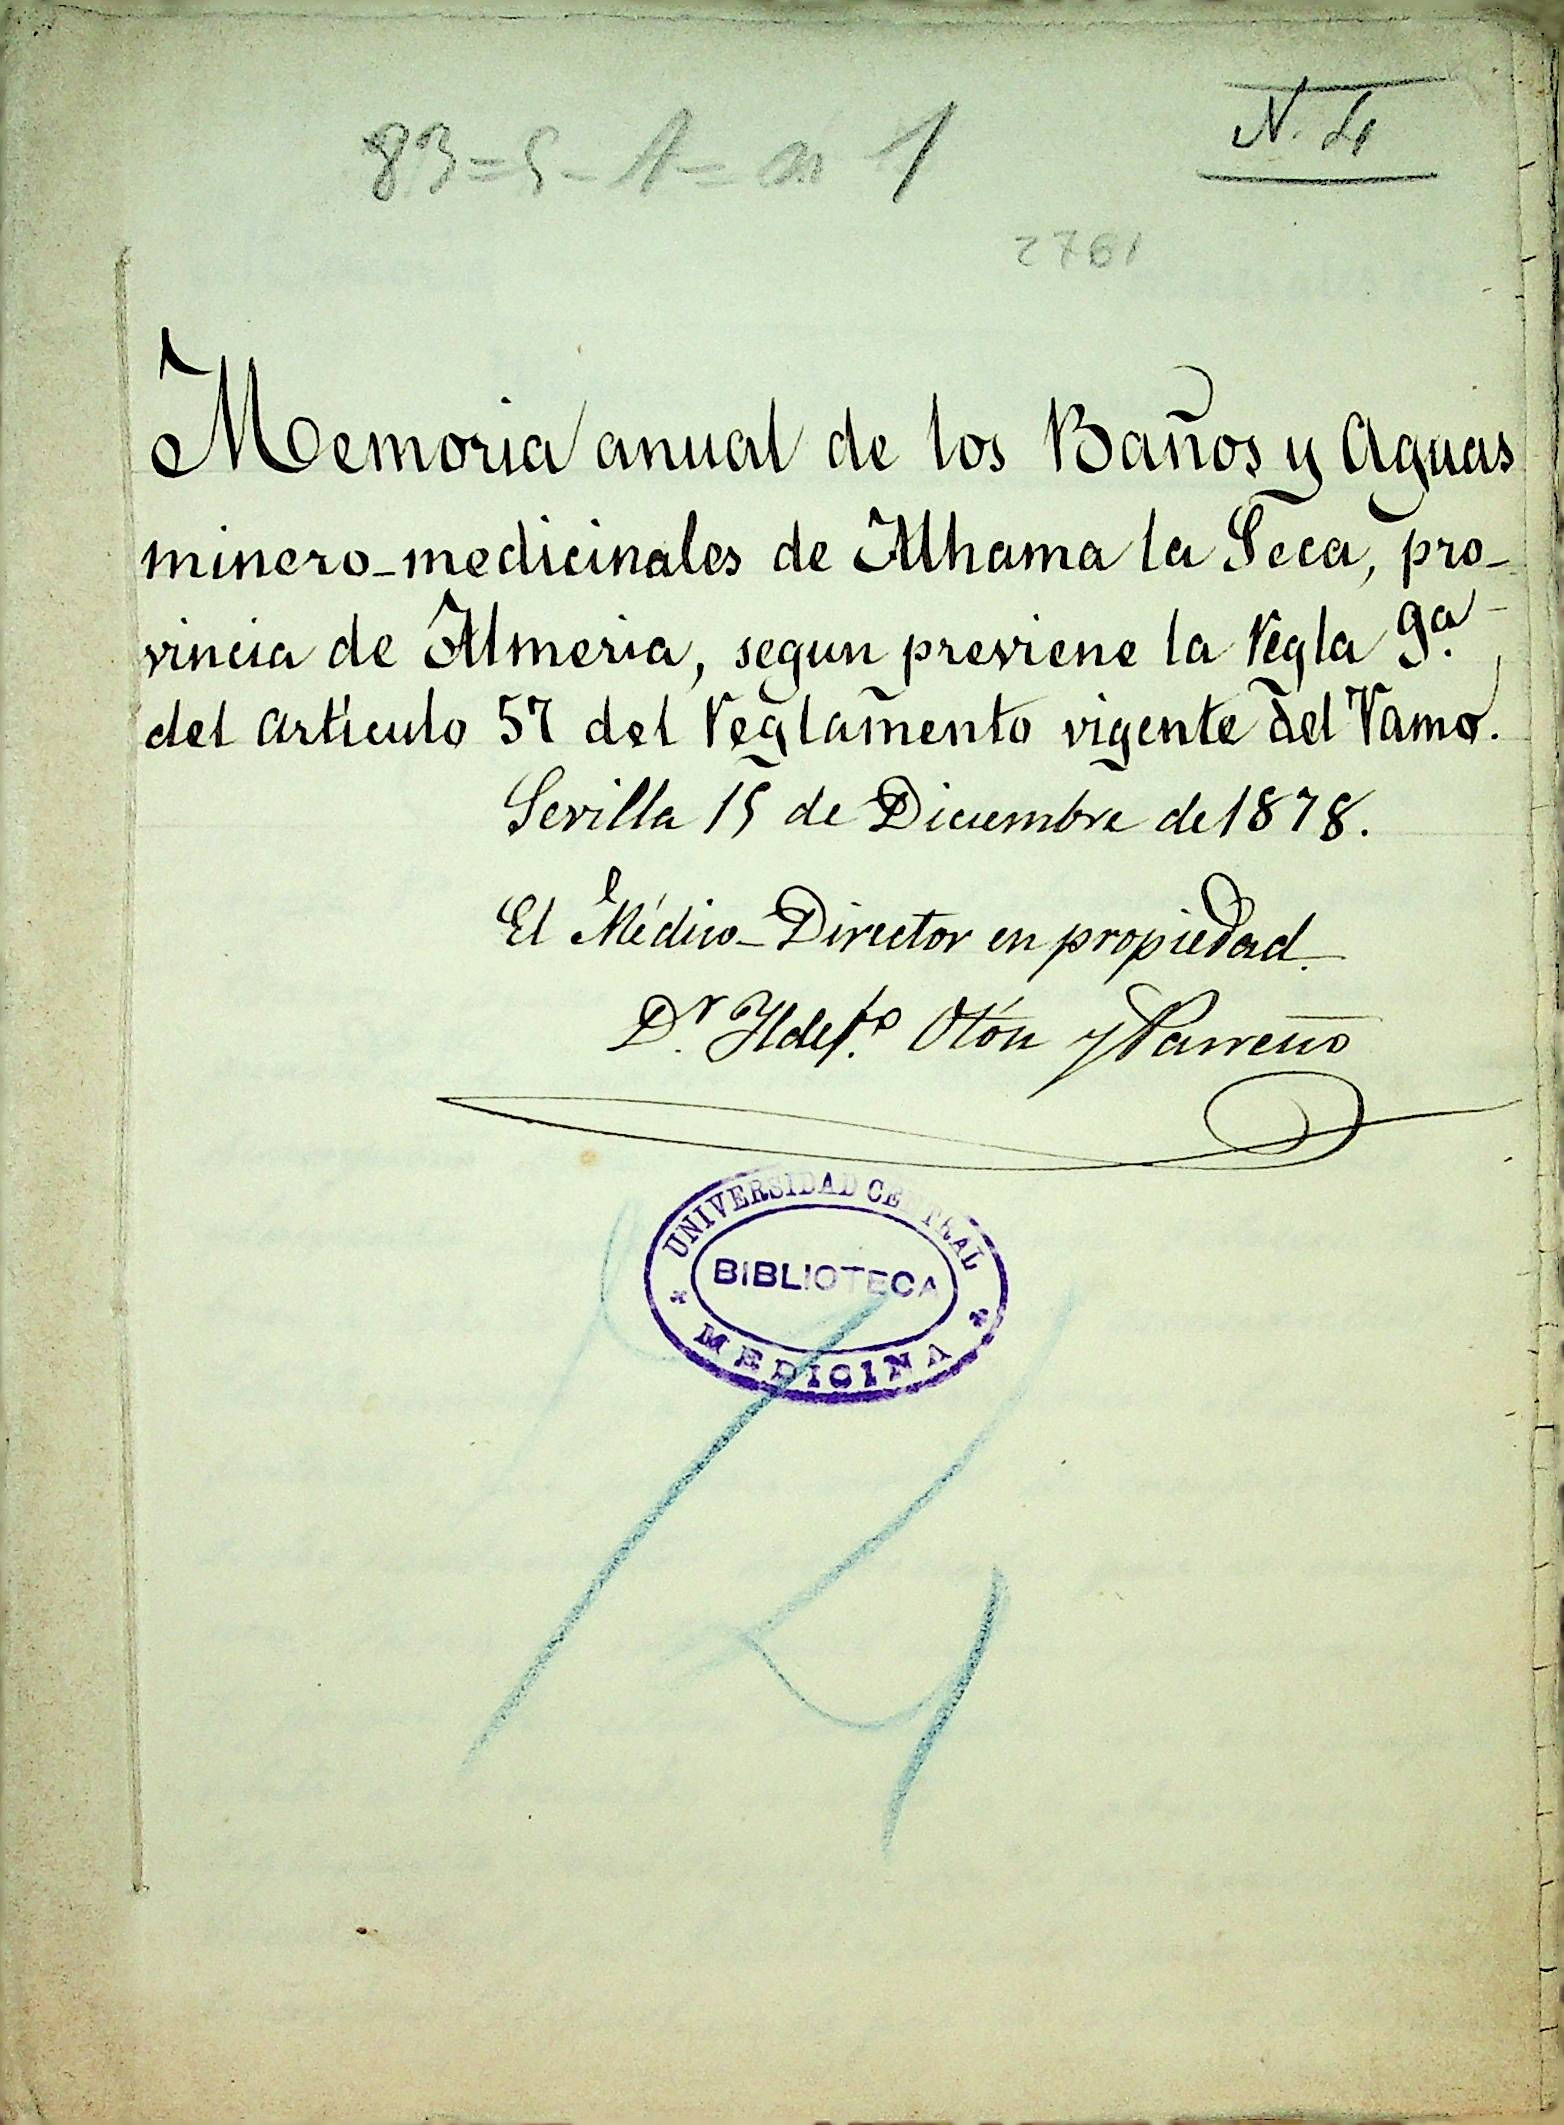 N. 4
83=5-A=n 1
2761
Memoria anual de los Baños y Aguas
minero-medicinales de Alhama la Seca, pro-
vincia de Almeria, segun previene la regla 9ª
del artículo 57 del reglamento vigente del ramo.
Sevilla 15 de Diciembre de 1878.
El Médico-Director en propiedad.
Dr. Ildefº Otón y Parreño
UNIVERSIDAD CENTRAL
BIBLIOTECA
MEDICINA